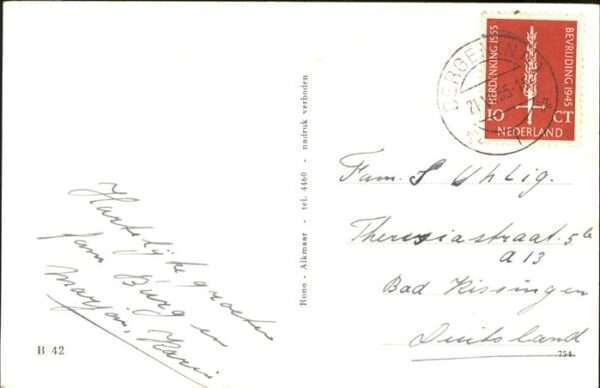 HERDENKING 1555
BEVRIJDING 1945
10 CT
NEDERLAND
BERGEN
Rono - Alkmaar - tel. 4460 - nadruk verboden
Fam. S Uhlig.
Theresiastraat. 5b
a 13
Bad Kissingen
Duitsland
Hartelijke groeten
fam Burg en
Marjan, Karin
B 42
754